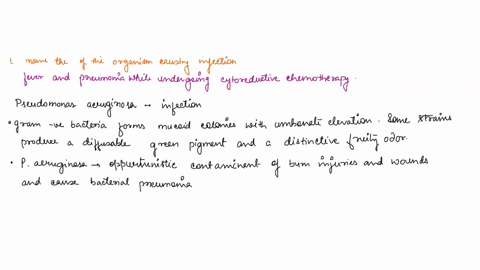 1. name the of the organism causing infection
fever and pneumonia while undergoing cytoreductive chemotherapy.
Pseudomonas aeruginosa → infection
• gram -ve bacteria forms mucoid colonies with umbonate elevation. Some strains
produce a diffusable green pigment and a distinctive fruity odor.
• P. aeruginosa → oppurtunistic contaminent of burn injuries and wounds
and cause bacterial pneumonia